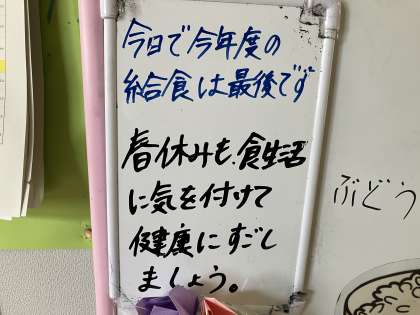 今日で今年度の
給食は最後です
春休みも、食生活
に気を付けて
健康にすごし
ましょう。
ぶどう